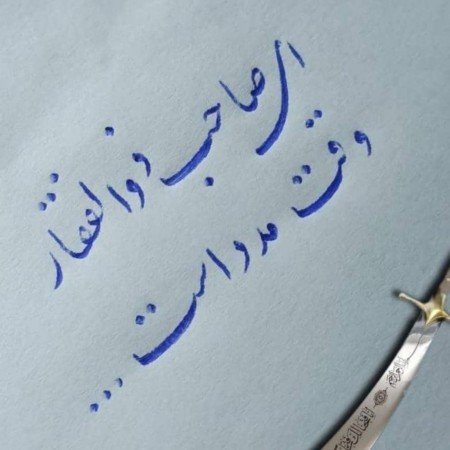 ای صاحب ذوالفقار
وقت مدد است...